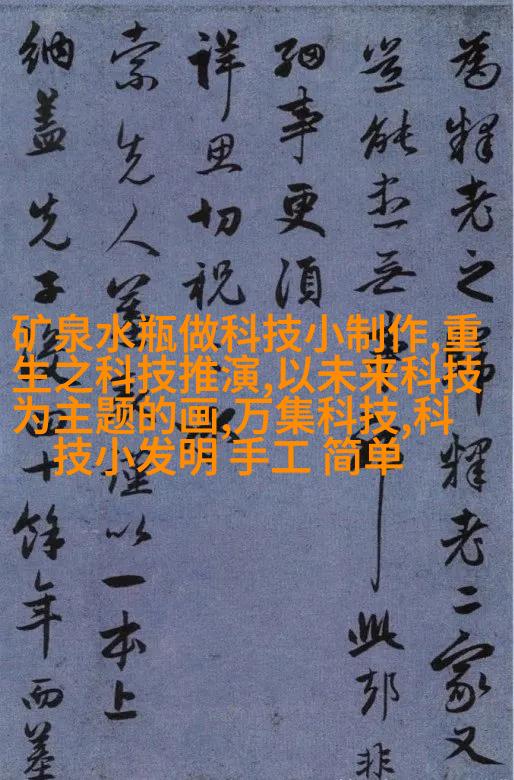 為釋老之釋老二家又
豈能盡無此却非
細事更須
詳思切祝
索先人墓以一本上
納蓋先子十餘年而墓
矿泉水瓶做科技小制作,重
生之科技推演,以未来科技
为主题的画,万集科技,科
技小发明 手工 简单